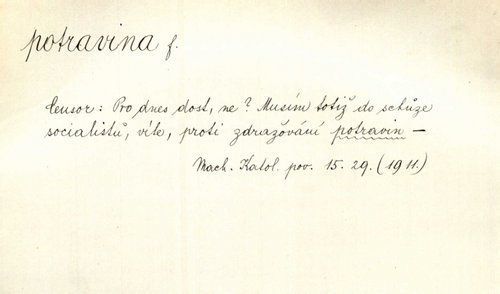 potravina f.
Censor: Pro dnes dost, ne? Musím totiž do schůze
socialistů, víte, proti zdražování potravin —
Mach. Katol. pov. 15. 29. (1911.)